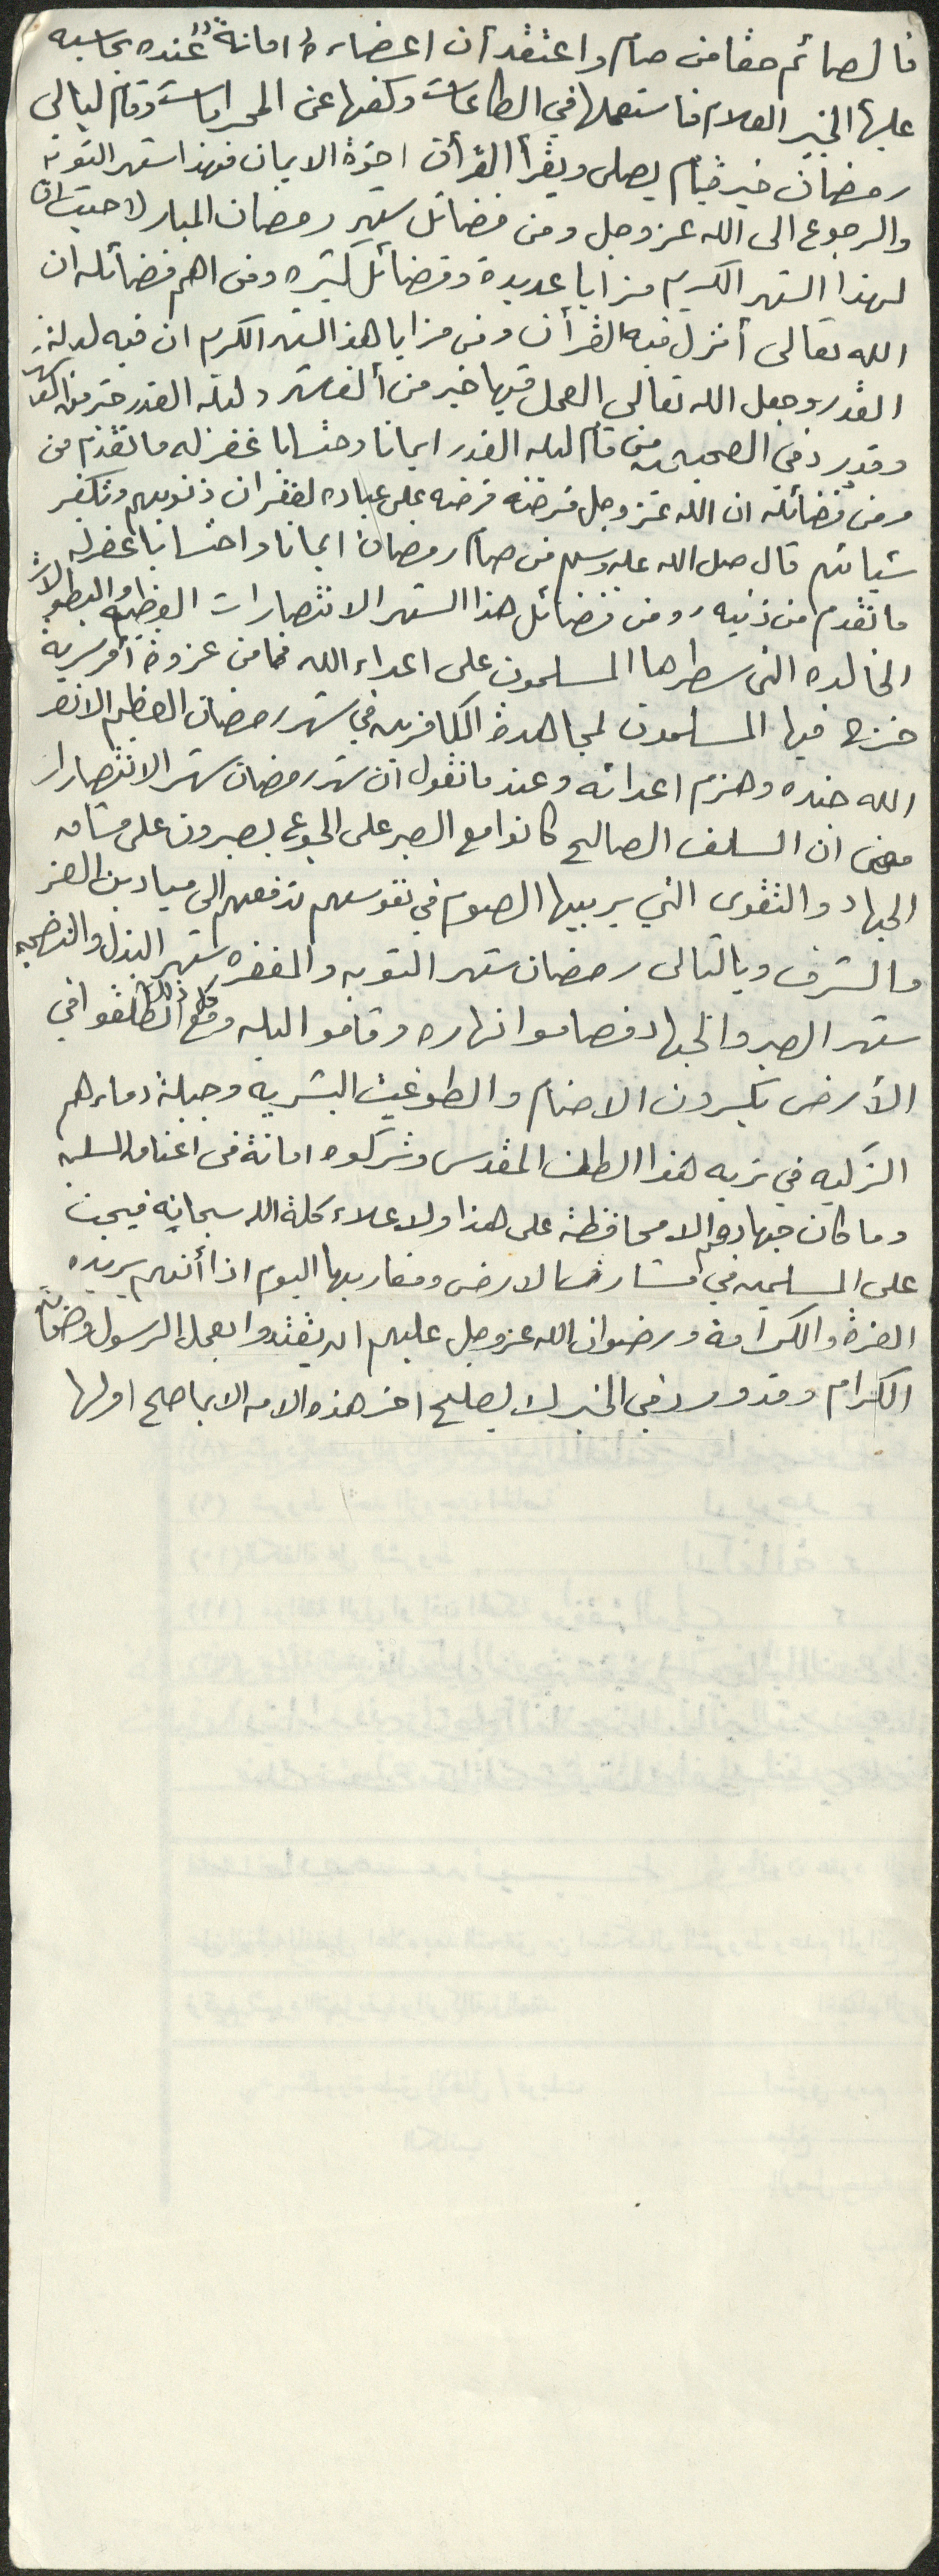 فالصائم حقا من صام واعتقد أن اعضاءه امانة عنده يحاسبه
عليها الخبير العلام فاستعملها في الطاعات وكفها عن المحرامات وقام ليالي
رمضان خير قيام يصلى ويقرأ القرأن اخوة الايمان فهذا شهر التوبة
والرجوع الى الله عز وجل ومن فضائل شهر رمضان المبارك حيث ان
لهذا الشهر الكريم مزايا عديدة وفضائل كثيره ومن اهم فضائله ان
الله تعالى أنزل فيه القرأن ومن مزايا هذ الشهر الكرم ان فيه ليلة
القدر وجعل الله تعالى العمل فيها خير من ألف شهر وليلة القدر خير من الف شهر
وقد ورد في الصحيحين من قام ليله القدر ايمانا وحتسابا غفر له ما تقدم من
ومن فضائله ان الله عز وجل فرضه فرضه على عباده لغفران ذنوبهم وتكفير
سياتهم قال صل الله عليه وسلم من صام رمضان ايمانا واحتسابا غفر له
ما تقدم من ذنبه ومن فضائل هذا الشهر الانتصارات العظيمه والبطولات
الخالده التى سطرها المسلمون على اعداء الله فما من غزوة أو سرية
خرج فيها المسلمون لمجاهدة الكافرين في شهر رمضان العظيم الا نصر
الله جنده وهزم اعدائه وعند ما نقول ان شهر رمضان شهر الانتصارات
معنى ان السلف الصالح كانوا مع الصبر على الجوع يصبرون على مشاق
الجهاد والتقوى التي يربيها الصوم في نفوسهم تدفعهم الى ميادين العز
والشرف وبالتالى رمضان شهر التوبه والمغفره شهر البذل والتضحيه
شهر الصبر والجهاد فصاموا نهاره وقاموا اليله ومع كل ذالك انطلقوا في
الأرض يكسرون الاصنام والطوغيت البشريه وجبلة دماءهم
الزكيه في تربه هذا الطن المقدس وتركوه امانة في اعناق المسلمين
وما كان جهادهم الا محافظة على هذا ولاعلاء كلمة الله سبحانه فيجب
على المسلمين في مشارق الارض ومغاربها اليوم اذا أنهم يريدو
العزة والكرامة ورضوان الله عز وجل عليهم ان يقتدوا بعمل الرسول وصحابته
الكرام وقد ورد في الخبر لا يصلح اخر هذه الامه الا بما صلح اولها